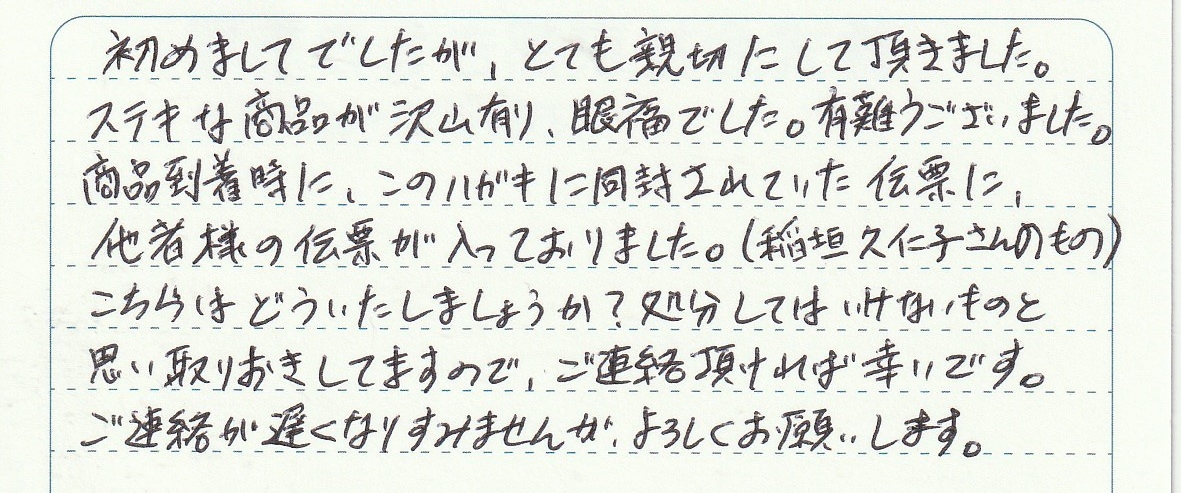 初めましてでしたが、とても親切にして頂きました。
ステキな商品が沢山有り、眼福でした。有難うございました。
商品到着時に、このハガキに同封されていた伝票に、
他者様の伝票が入っておりました。(稲垣久仁子さんのもの)
こちらはどういたしましょうか？処分してはいけないものと
思い取りおきしてますので、ご連絡頂ければ幸いです。
ご連絡が遅くなりすみませんが、よろしくお願いします。